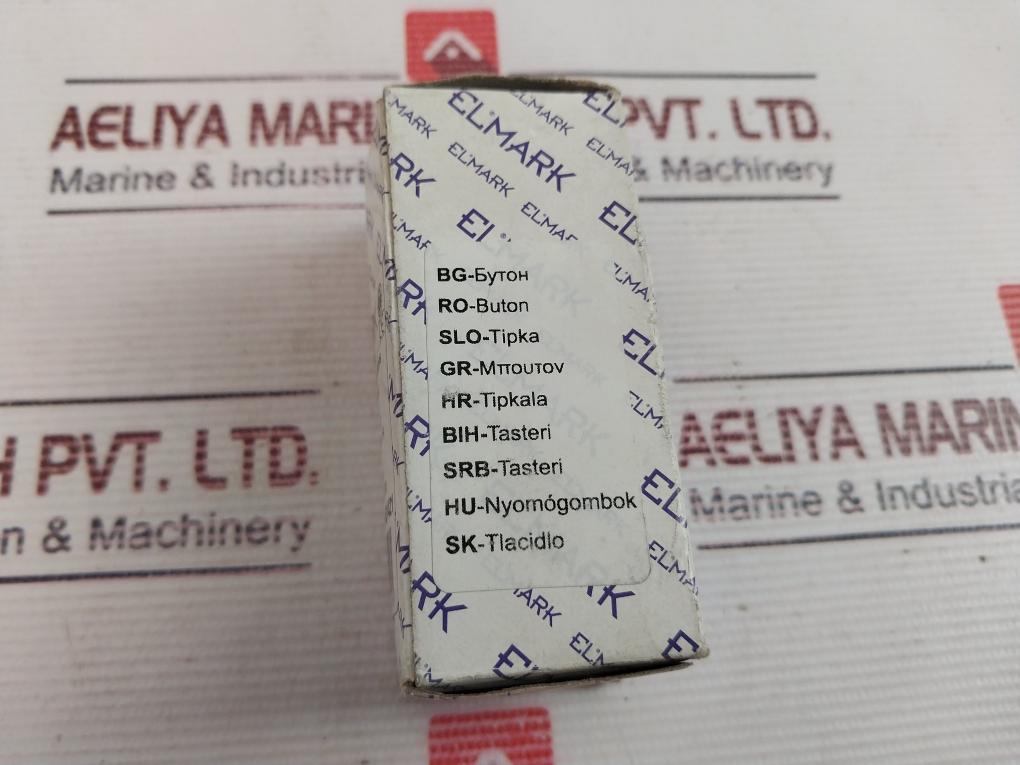 AELIYA MARI PVT. LTD.
Marine & Industri & Machinery
ELMARK
ELMARK
ELMARK
ELMARK
BG-Бутон
RO-Buton
SLO-Tipka
GR-Μπουτον
HR-Tipkala
BIH-Tasteri
SRB-Tasteri
HU-Nyomógombok
SK-Tlacidlo
H PVT. LTD.
n & Machinery
AELIYA MARIN
Marine & Industria